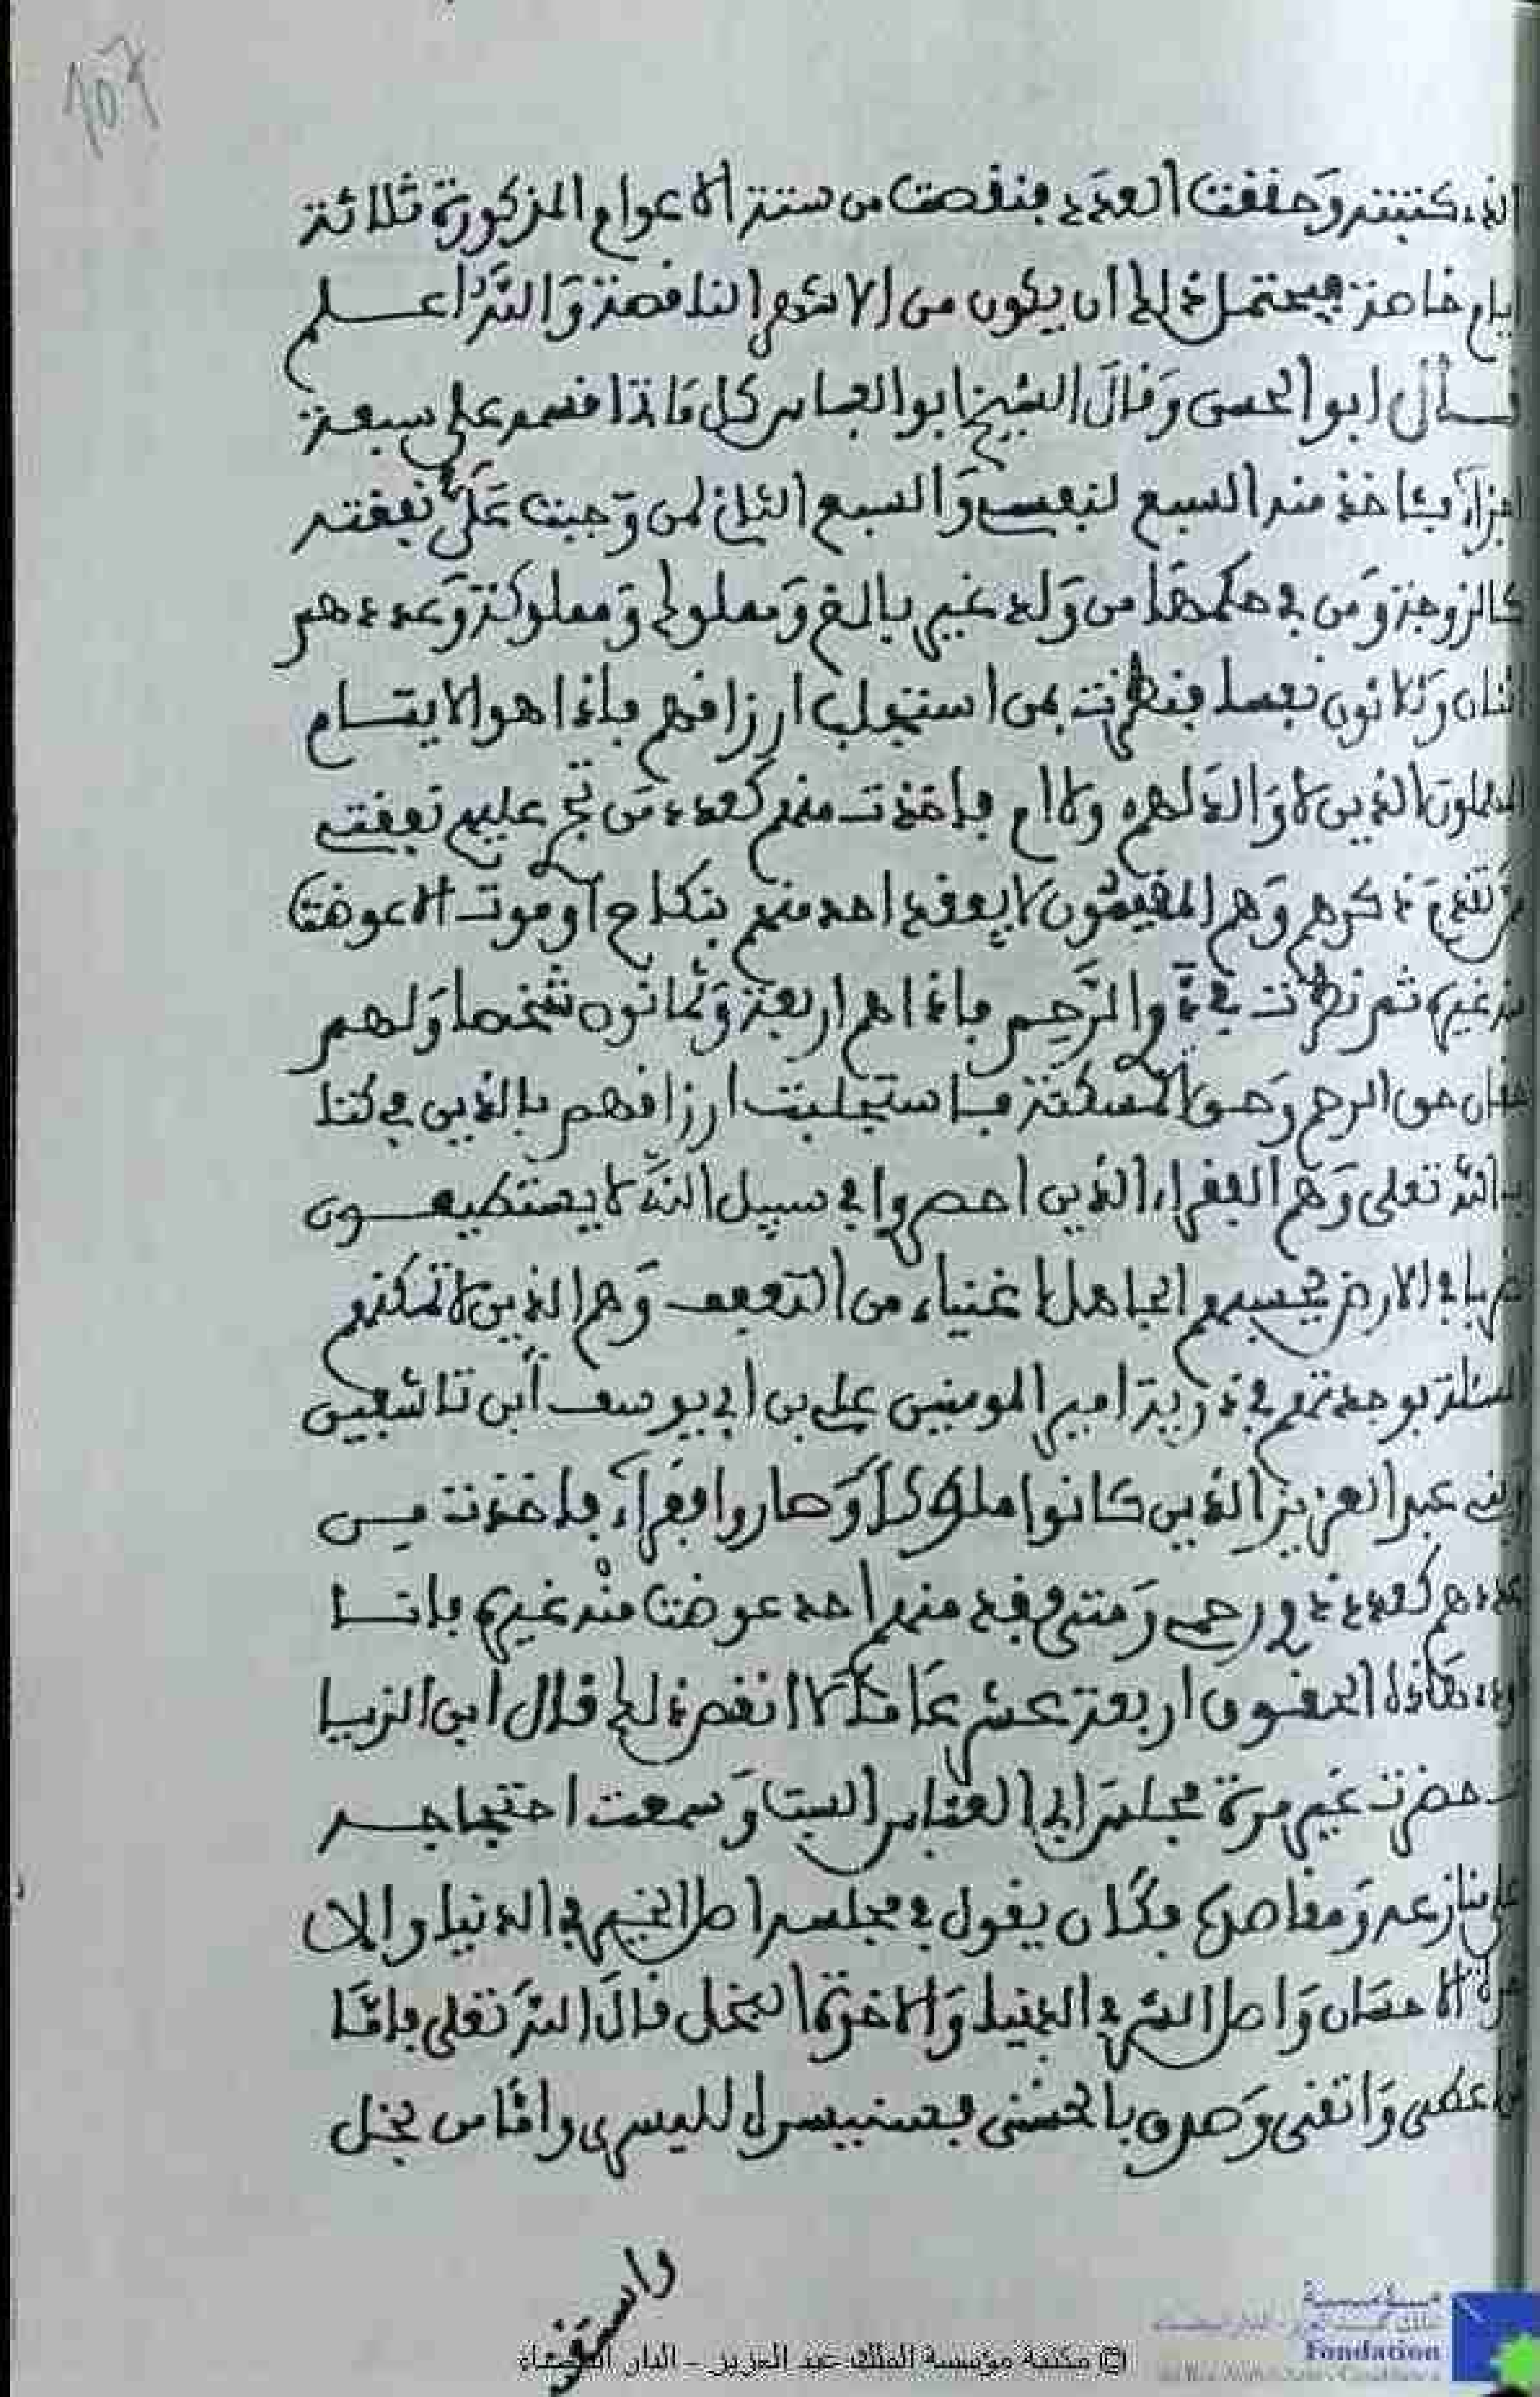 ١٥٧
الذي كتبته وَحققت العدد فنقصت من ستة الاعوام المذكورة ثلاثة
ايام خاصة فيحتمل ذلك ان يكون من الاشهر الناقصة وَاللهُ اعلم
قال ابو الحسن وَقالَ الشيخ ابو العباس كل مَا ياتينا فنقسمه على سبعة
اجزاء فناخذ منه السبع لنفسي وَالسبع الثاني لمن وَجبت عَليَّ نفقته
كالزوجة وَمن في حكمهَا من وَلد غير بالغ وَمملوك وَمملوكة وَعددهم
اثنان وَثلاثون نفسا فنظرت بمن استجلب ارزاقهم فاذا هو الايتام
المهملون الذين لا وَالد لهم ولا ام فاخذت منهم كعدد مَن تجب عليّ نفقته
ذكرهم وَهم المقيمُون لا يفقد احد منهم بنكاح اَو موت الا عوضت
منه غيره ثم نظرت في ذوي الرَّحِم فاذا هم اربعة وَثمانون شخصا وَلهم
حقان حق الرحم وَحق المسكنة فاستجلبت ارزاقهم بالذين في كتا
ب الله تعلى وَهم الفقراء الذين احصروا في سبيل اللهِ لا يستطيعون
ضربا في الارض يحسبهم الجاهل اغنياء من التعفف وَهم الذين لا تمكنهم
المسئلة فوجدتهم في ذرية امير المومنين علي بن ابي يوسف اَبن تاشفين
وبني عبد العزيز الذين كانوا ملوكا وَصاروا فقراء فاخذت من
عددهم كعدد ذوي رحمي وَمتى فقد منهم احد عوضت مِنْه غيره فانا
اودي هَاذه الحقوق اربعة عشر عَاما لا انقص ذلك قال ابن الزيا
ت حضرت غَير مرة مجلسَ ابي العباس السبتي وَسمعت احتجاجه
على منازعه وَمعارضه فكان يقول في مجلسه اصل الخير في الدنيا والا
خرة الاحسَان وَاصل الشر في الدنيا وَالاخرة البخل قالَ اللهُ تعلى فامَّا
من اعطى وَاتقى وَصدق بالحسْنى فسنيسره لليسرى وامَّا من بخل
واستغنى
© مكتبة مؤسسة الملك عبد العزيز – الدار البيضاء
Fondation